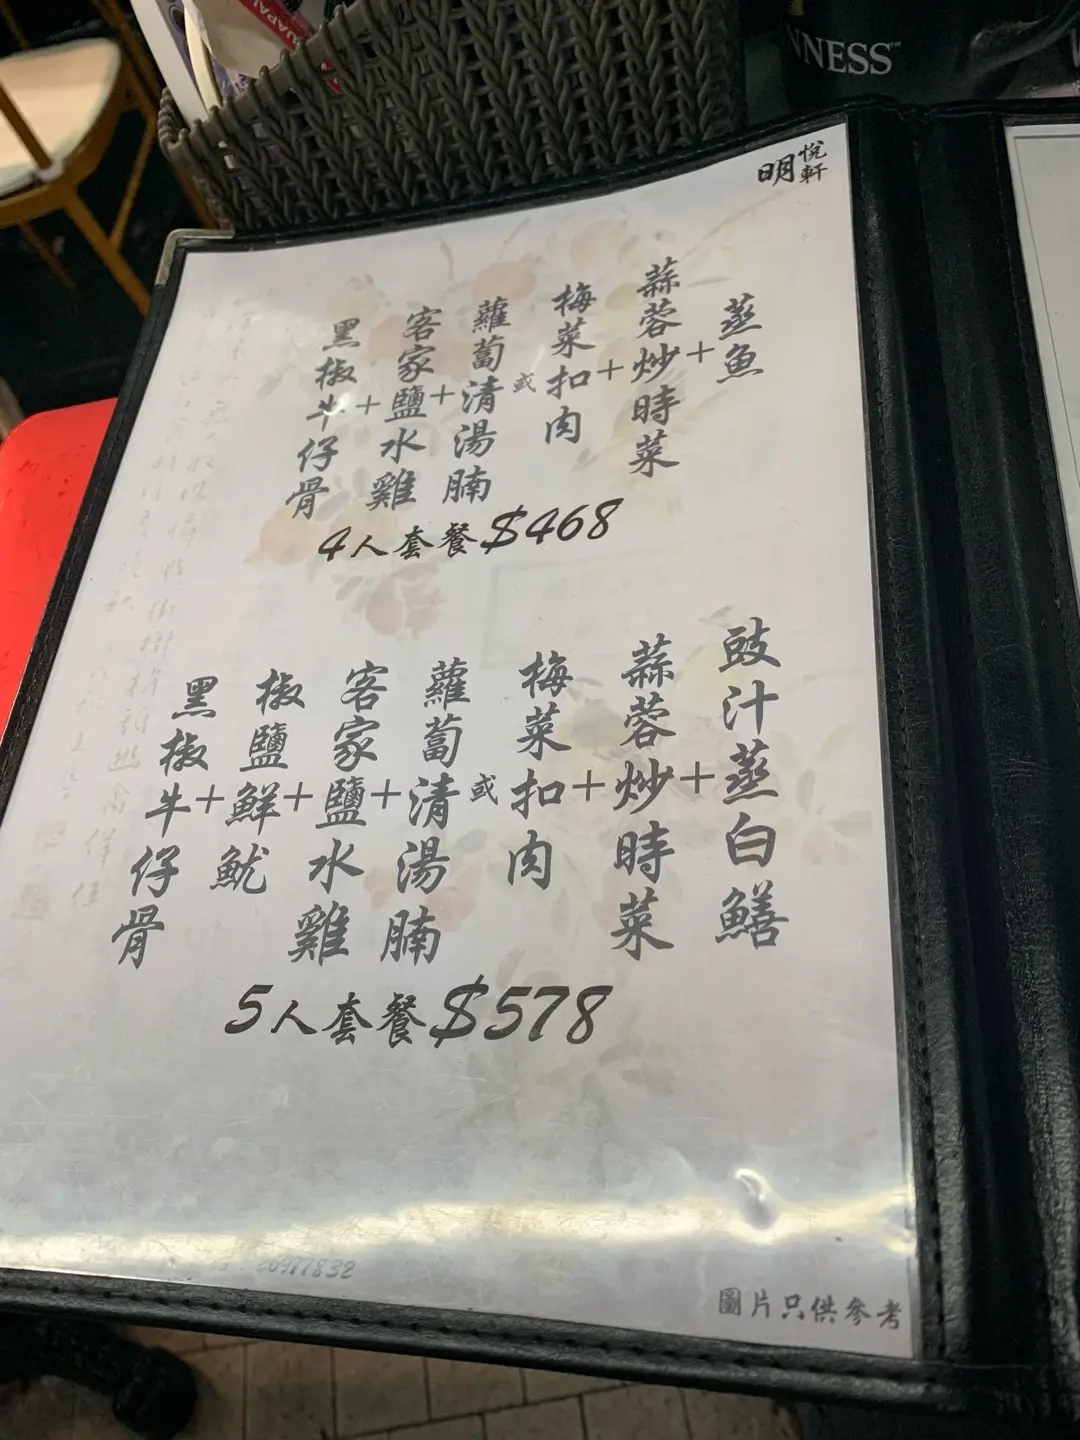 NNESS
明悅軒
黑椒牛仔骨
+
客家鹽水雞
+
蘿蔔清湯腩
或
梅菜扣肉
+
蒜蓉炒時菜
+
蒸魚
4人套餐$468
黑椒牛仔骨
+
椒鹽鮮魷
+
客家鹽水雞
+
蘿蔔清湯腩
或
梅菜扣肉
+
蒜蓉炒時菜
+
豉汁蒸白鱔
5人套餐$578
26977832
圖片只供參考